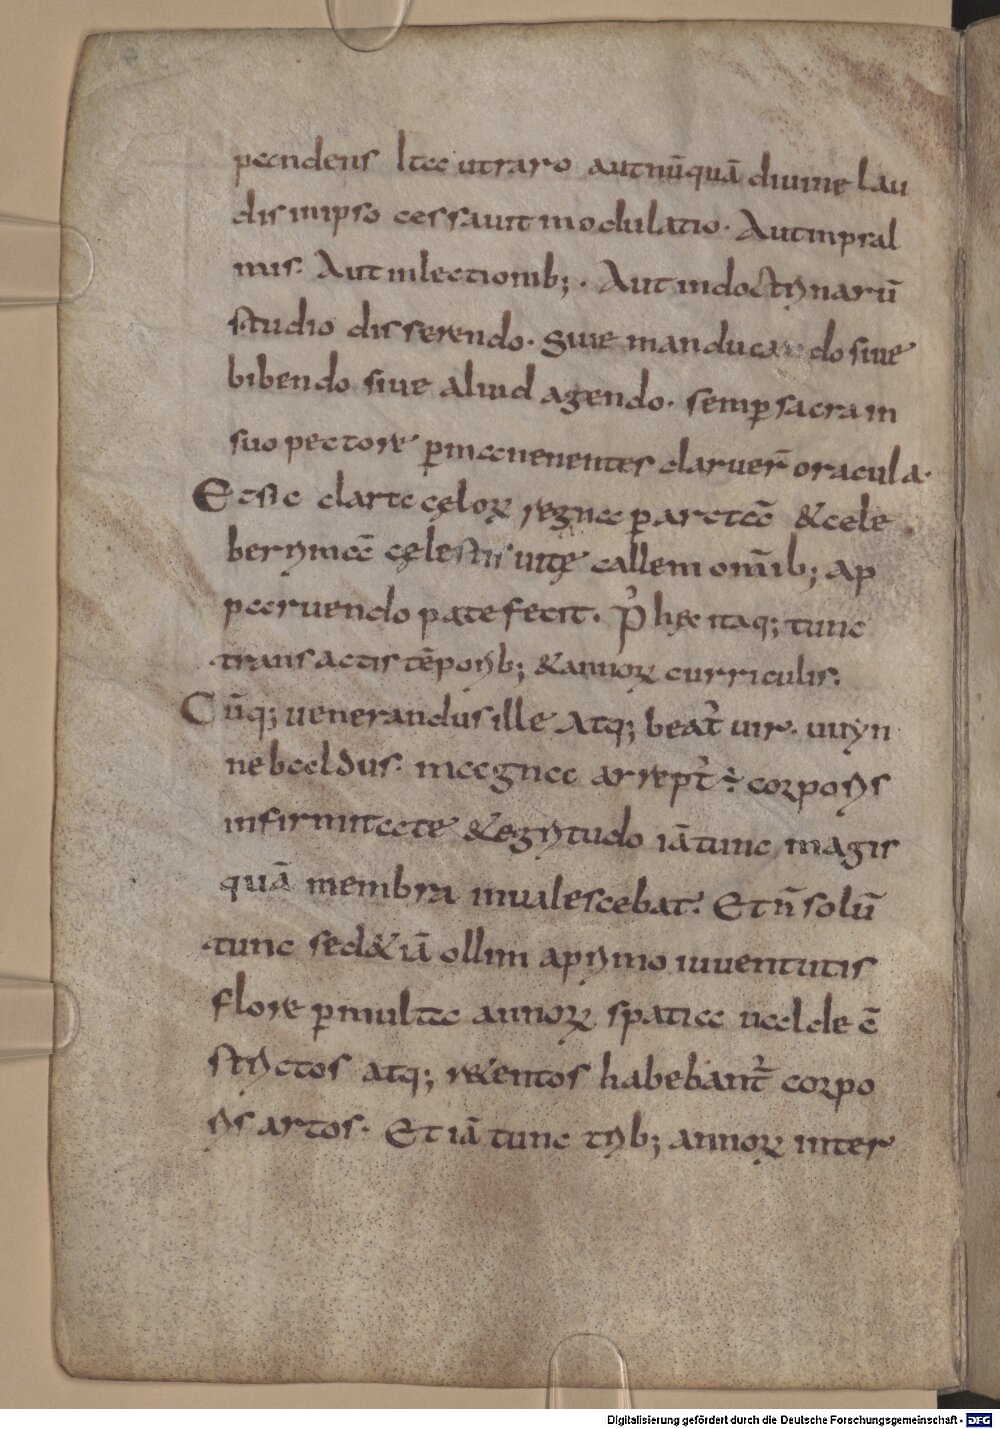 pandens Ita ut raro aut nūquā divine lau
dis in ipso cessavit modulatio. Aut in psal
mis. Aut in lectionib;. Aut in doctrinarū
studio disserendo. Sive manducando sive
bibendo sive aliud agendo. semꝑ sacra in
suo pectore ꝑmanenentes claruer̄ oracula.
Et sic clarte cęloꝝ regna ꝑarctā & cele
berrimā cęlestis vitę callem om̄ib; ap
paruendo patefecit. P᾿ hęc itaq; tunc
transactis tēporib; & annoꝝ curriculis.
Cūq; venerandus ille atq; beat᾿ vir. uuyn
nebaldus. magna arrept᾿ ÷ corporis
infirmitate & egritudo iā tunc magis
quā membra invalescebat. Et n̄ solū
tunc sed & iā ollim a primo iuventutis
flore ꝑ multa annoꝝ spatia valde c̄
strictos atq; retentos habebant᾿ corpo
ris artos. Et iā tunc trib; annoꝝ inter
Digitalisierung gefördert durch die Deutsche Forschungsgemeinschaft - DFG